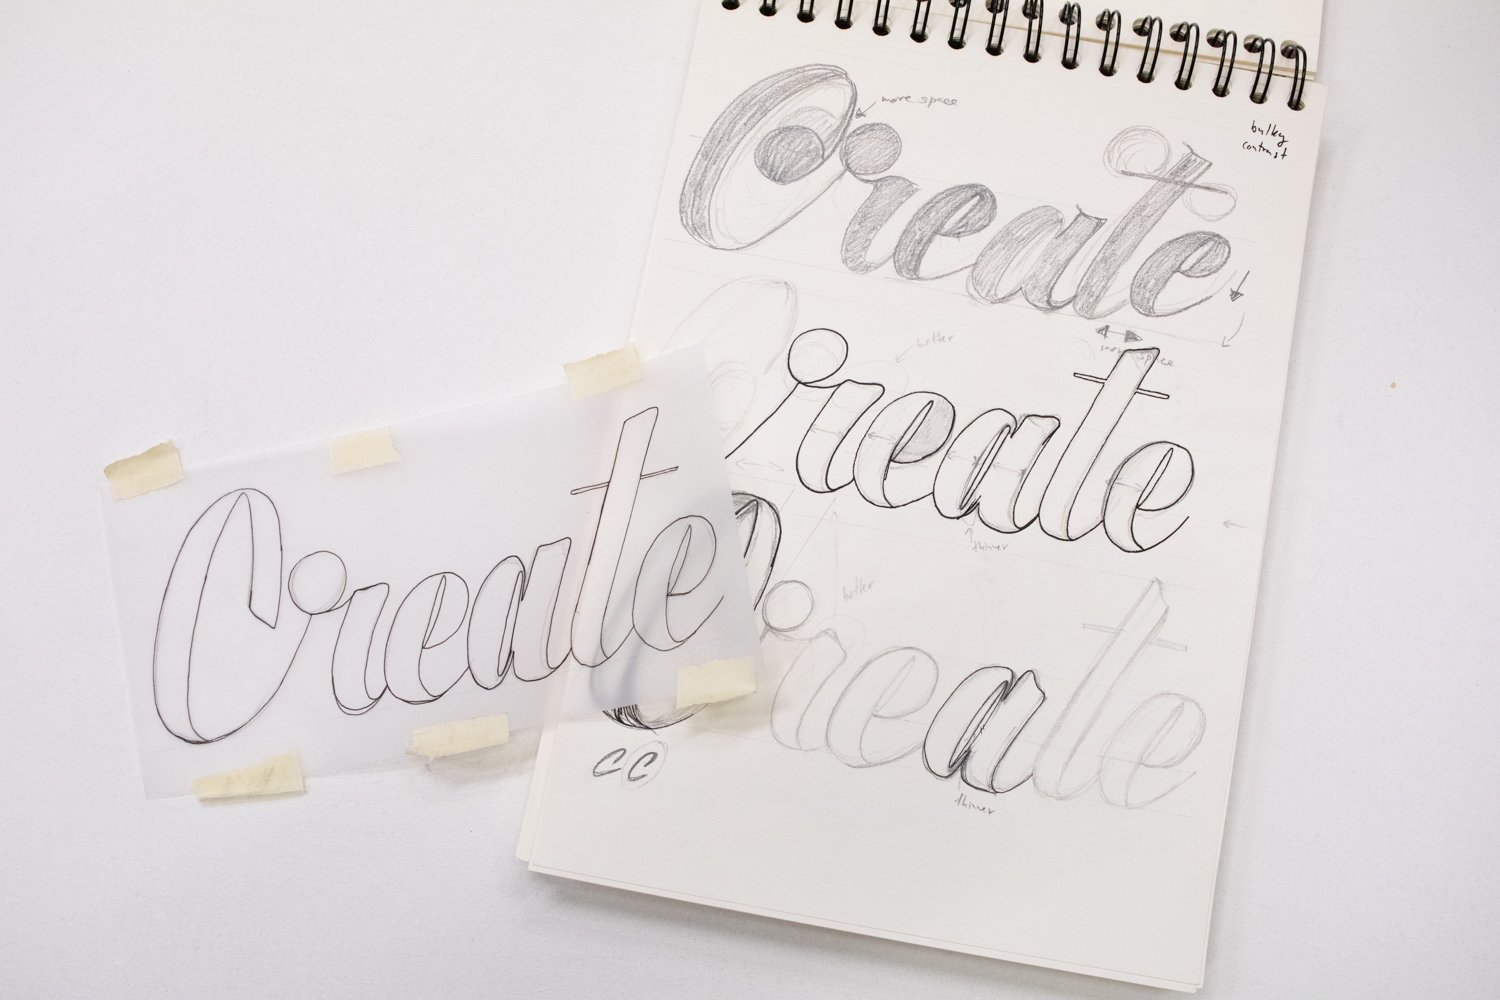 more space
bulky
contrast
Create
more space
better
Create
thinner
better
Create
thinner
C C
Create